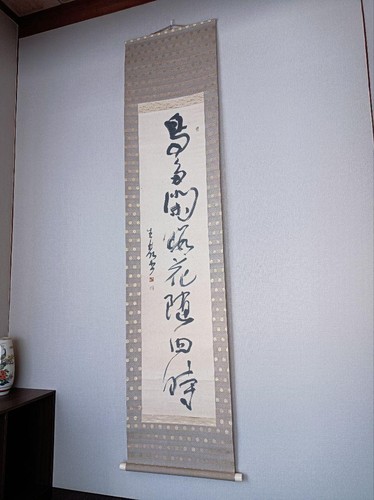 鳥多閑暇花随四時